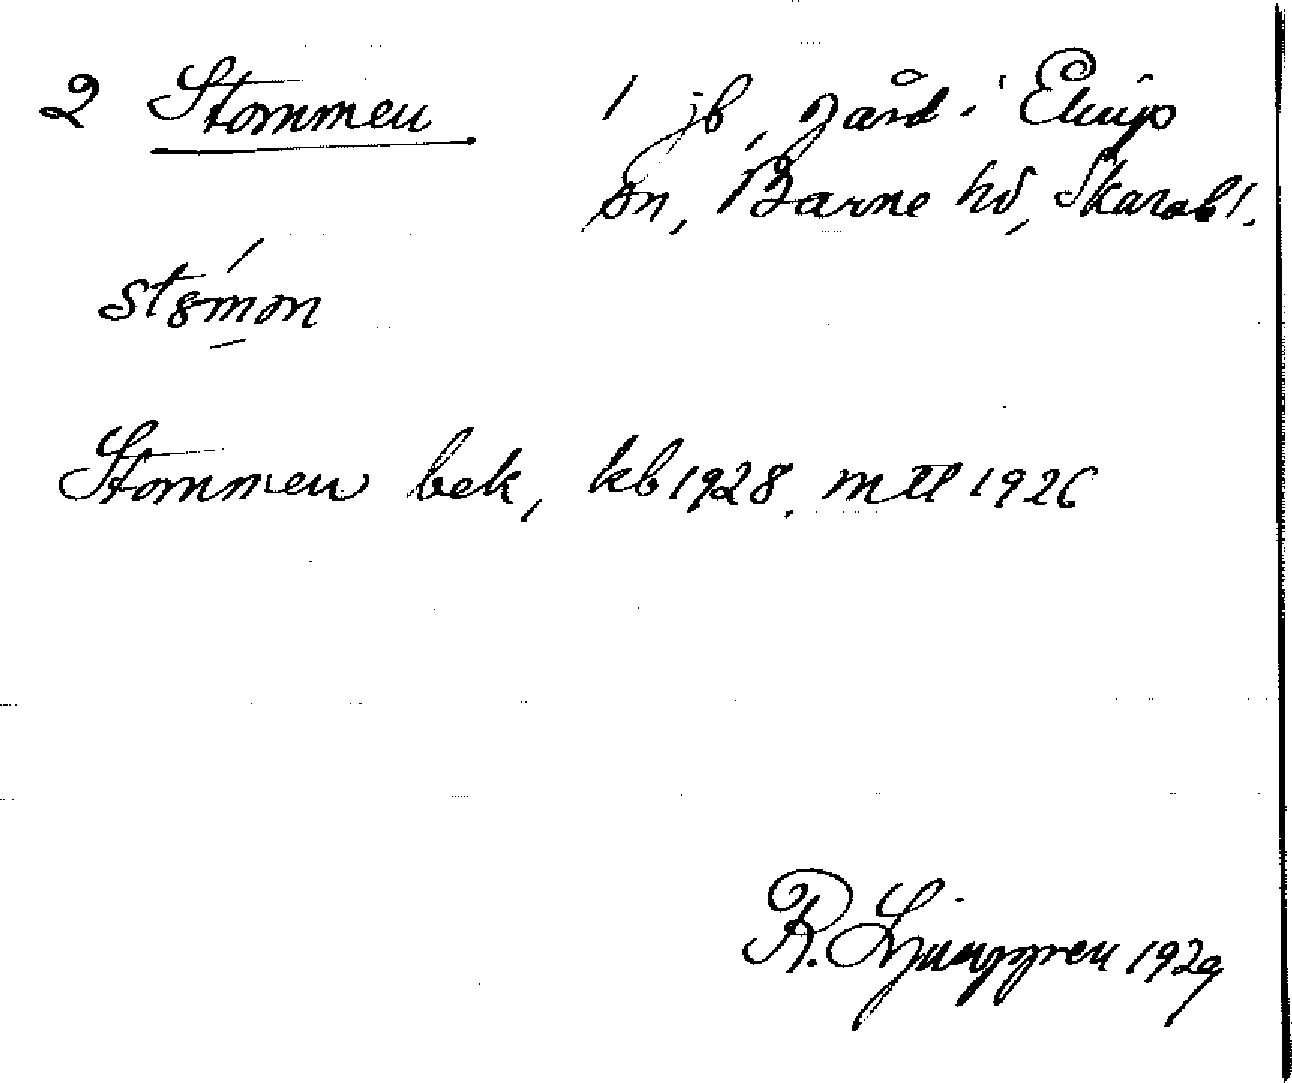 2 Stommen 1 jb, gård i Elings
sn, Barne hd, Skarabl.
stɞ́mm̥
Stommen bek, kb 1928, mtl 1926
R. Ljunggren 1929